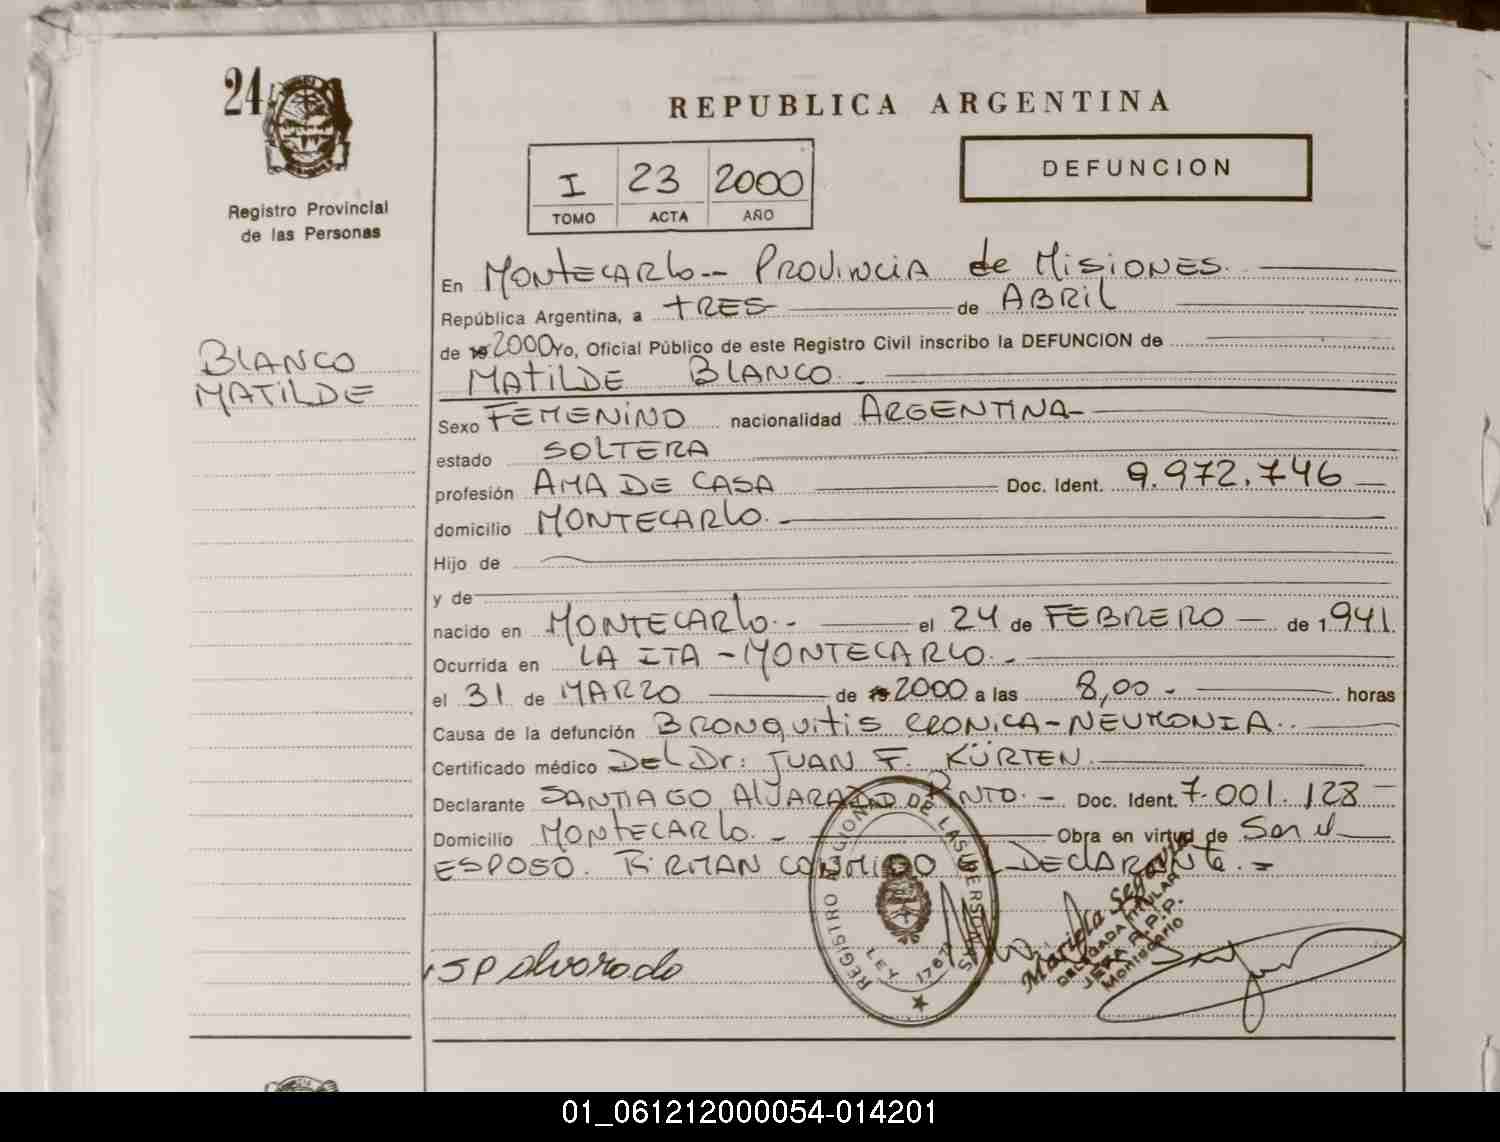 24
Registro Provincial
de las Personas
REPUBLICA ARGENTINA
I 23 2000
TOMO ACTA AÑO
DEFUNCION
BLANCO
MATILDE
En MONTECARLO-- PROVINCIA de MISIONES.
República Argentina, a TRES de ABRIL
de 19 2000 Yo, Oficial Público de este Registro Civil inscribo la DEFUNCION de
MATILDE BLANCO.
Sexo FEMENINO nacionalidad ARGENTINA-
estado SOLTERA
profesión AMA DE CASA Doc. Ident. 9.972.746
domicilio MONTECARLO.-
Hijo de
y de
nacido en MONTECARLO.- el 24 de FEBRERO de 1941
Ocurrida en LA ITA - MONTECARLO.-
el 31 de MARZO de 19 2000 a las 8,00- horas
Causa de la defunción BRONQUITIS CRONICA-NEUMONIA..
Certificado médico DEL Dr: JUAN F. KÜRTEN.
Declarante SANTIAGO ALVARADO Doc. Ident. 7.001.128
Domicilio MONTECARLO.- Obra en virtud de Ser el
ESPOSO. FIRMAN CONMIGO EL DECLARANTE.=
SP Alvarado
REGISTRO REGIONAL DE LAS PERSONAS
LEY 1767
Mariela Segovia
DELEGADA TITULAR
JEFA R.P.P.
Montecarlo
01_061212000054-014201